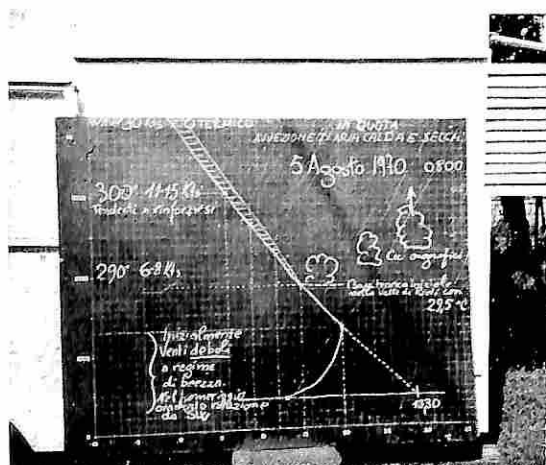 IN QUOTA
AVVEZIONE DI ARIA CALDA E SECCA
5 Agosto 1970 0800
300° 11-15 Kts
Tendenti a rinforzarsi
Cu orografici
290° 6-8 Kts
Base teorica iniziale
nella Valle di Rieti con
29,5 °C
Inizialmente
Venti deboli
a regime
di brezza.
Nel pomeriggio
rotazione
da SW
1230